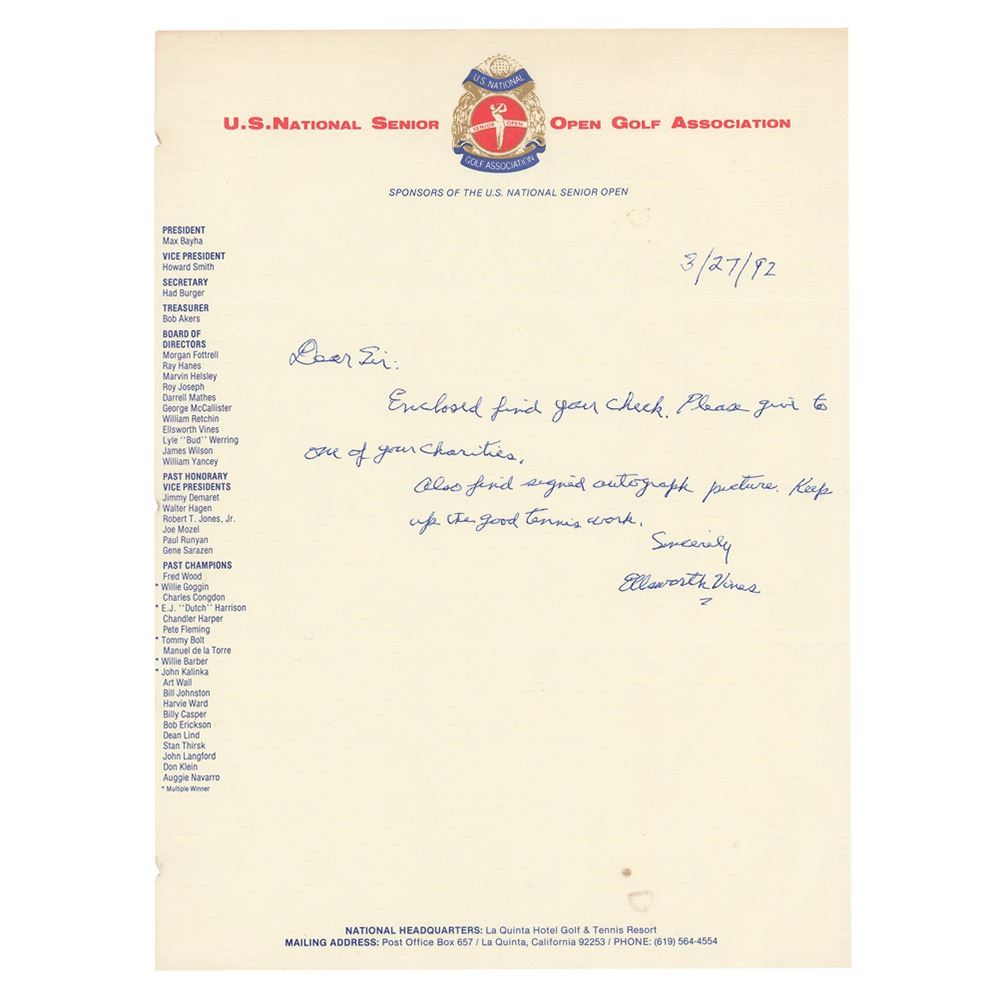 U.S. NATIONAL
SENIOR OPEN
GOLF ASSOCIATION
U.S. NATIONAL SENIOR OPEN GOLF ASSOCIATION
SPONSORS OF THE U.S. NATIONAL SENIOR OPEN
3/27/92
PRESIDENT
Max Bayha
VICE PRESIDENT
Howard Smith
SECRETARY
Had Burger
TREASURER
Bob Akers
BOARD OF
DIRECTORS
Morgan Fottrell
Ray Hanes
Marvin Helsley
Roy Joseph
Darrell Mathes
George McCallister
William Retchin
Ellsworth Vines
Lyle "Bud" Werring
James Wilson
William Yancey
PAST HONORARY
VICE PRESIDENTS
Jimmy Demaret
Walter Hagen
Robert T. Jones, Jr.
Joe Mozel
Paul Runyan
Gene Sarazen
PAST CHAMPIONS
Fred Wood
* Willie Goggin
Charles Congdon
* E.J. "Dutch" Harrison
Chandler Harper
Pete Fleming
* Tommy Bolt
Manuel de la Torre
* Willie Barber
* John Kalinka
Art Wall
Bill Johnston
Harvie Ward
Billy Casper
Bob Erickson
Dean Lind
Stan Thirsk
John Langford
Don Klein
Auggie Navarro
* Multiple Winner
Dear Sir:
Enclosed find your check. Please give to
one of your charities.
Also find signed autograph picture. Keep
up the good tennis work.
Sincerely
Ellsworth Vines
NATIONAL HEADQUARTERS: La Quinta Hotel Golf & Tennis Resort
MAILING ADDRESS: Post Office Box 657 / La Quinta, California 92253 / PHONE: (619) 564-4554